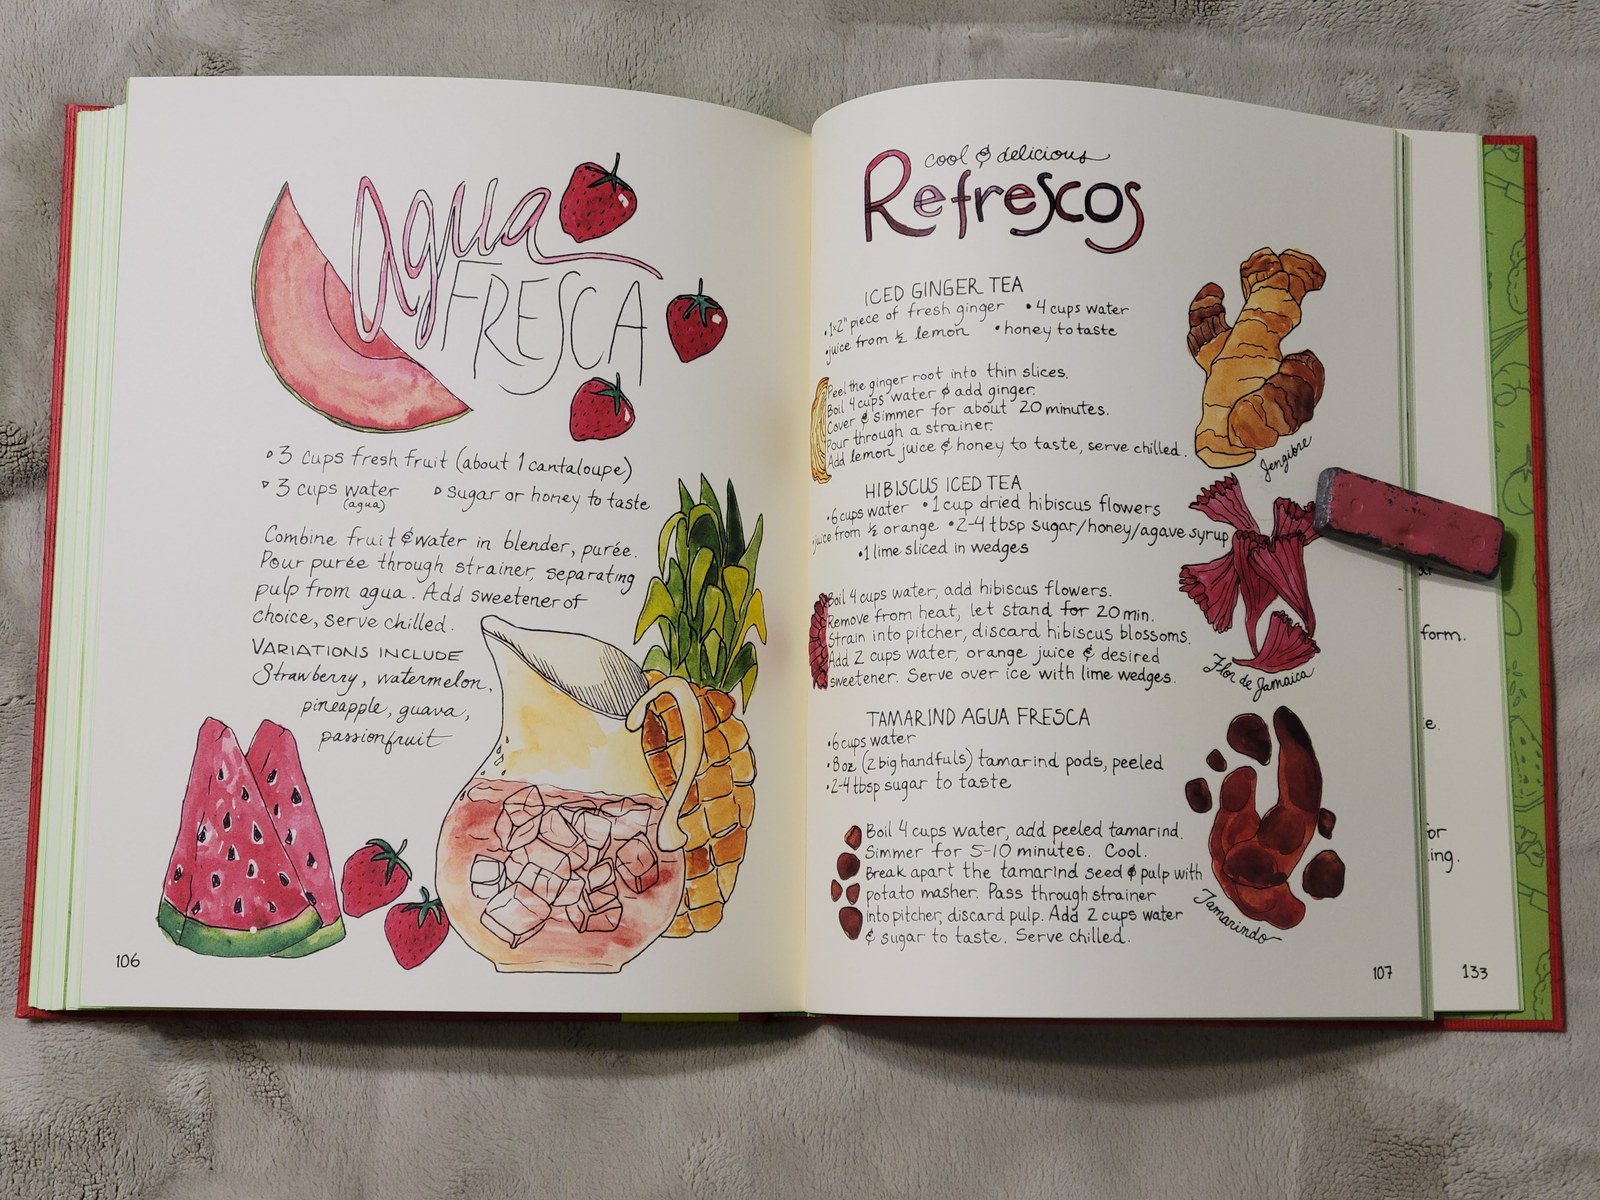 Agua
FRESCA
3 cups fresh fruit (about 1 cantaloupe)
3 cups water
(agua)
sugar or honey to taste
Combine fruit & water in blender, purée.
Pour purée through strainer, separating
pulp from agua. Add sweetener of
choice, serve chilled.
VARIATIONS INCLUDE
Strawberry, watermelon,
pineapple, guava,
passionfruit
106
cool & delicious
Refrescos
ICED GINGER TEA
•1x2" piece of fresh ginger •4 cups water
•juice from ½ lemon •honey to taste
Peel the ginger root into thin slices.
Boil 4 cups water & add ginger.
Cover & simmer for about 20 minutes.
Pour through a strainer.
Add lemon juice & honey to taste, serve chilled.
Jengibre
HIBISCUS ICED TEA
•6 cups water •1 cup dried hibiscus flowers
•juice from ½ orange •2-4 tbsp sugar/honey/agave syrup
•1 lime sliced in wedges
Boil 4 cups water, add hibiscus flowers.
Remove from heat, let stand for 20 min.
Strain into pitcher, discard hibiscus blossoms.
Add 2 cups water, orange juice & desired
sweetener. Serve over ice with lime wedges.
Flor de Jamaica
TAMARIND AGUA FRESCA
•6 cups water
•8 oz (2 big handfuls) tamarind pods, peeled
•2-4 tbsp sugar to taste
Boil 4 cups water, add peeled tamarind.
Simmer for 5-10 minutes. Cool.
Break apart the tamarind seed & pulp with
potato masher. Pass through strainer
into pitcher, discard pulp. Add 2 cups water
& sugar to taste. Serve chilled.
Tamarindo
107
form.
e.
for
ing.
133